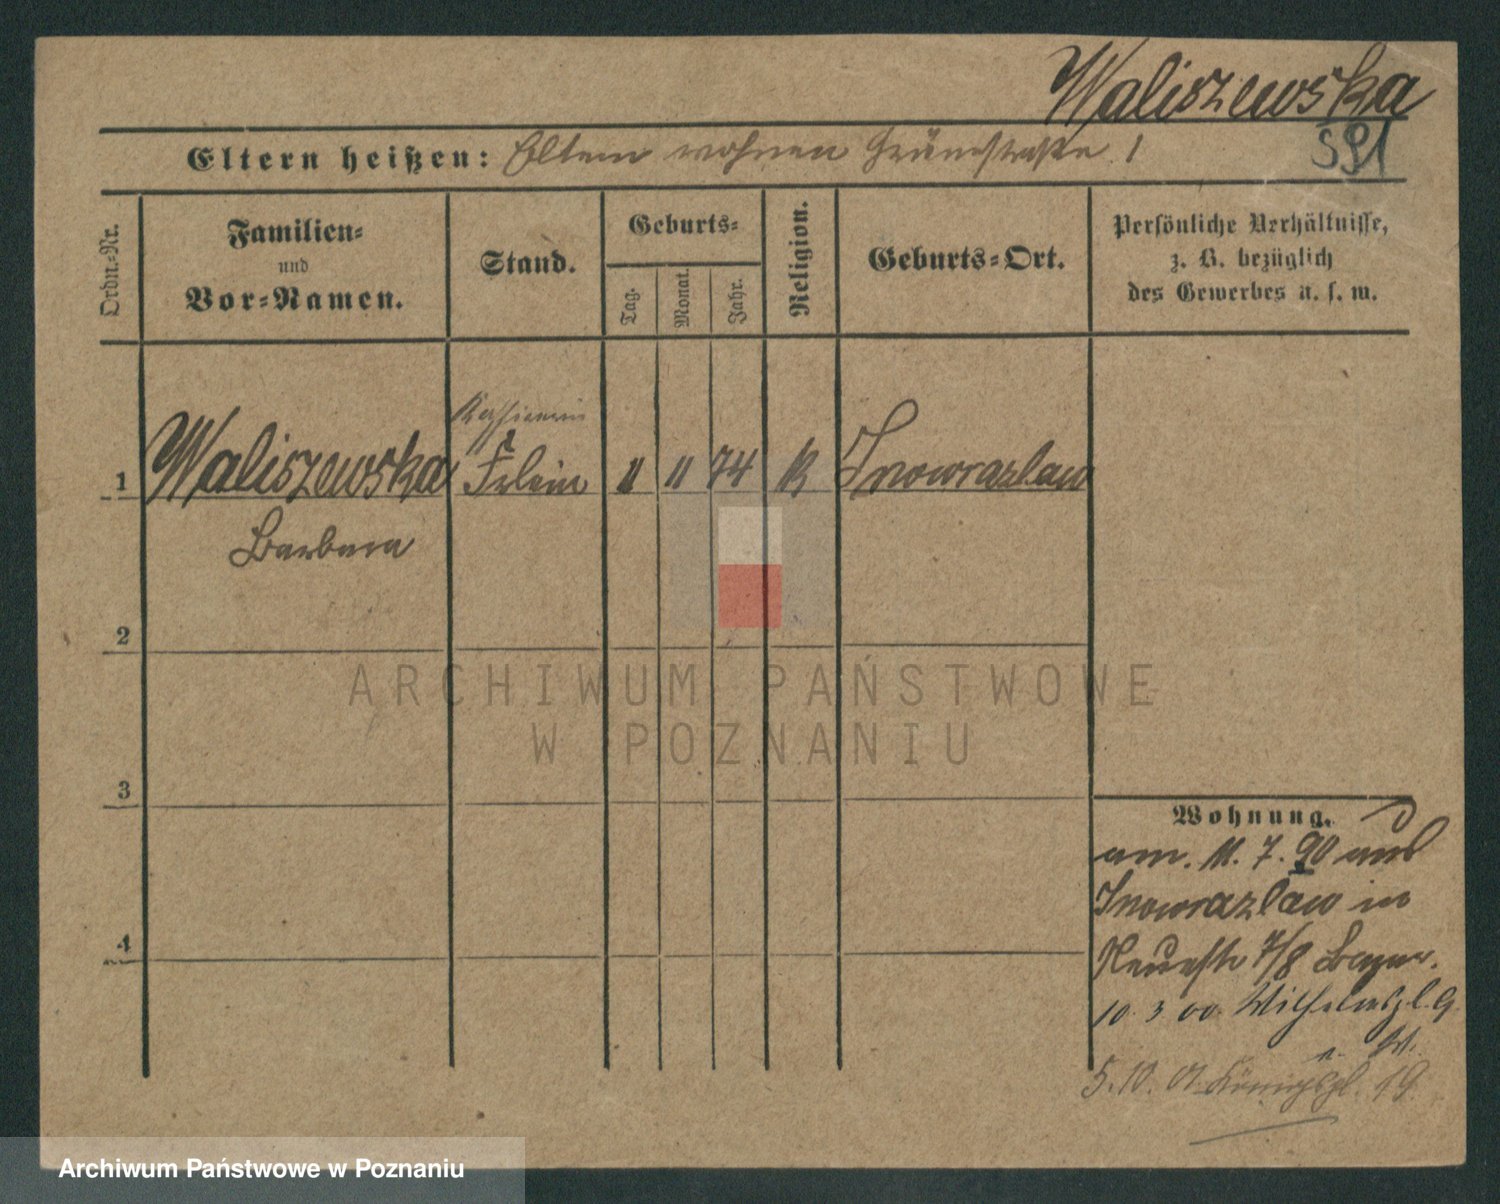 Waliszewska
Eltern heißen: Eltern wohnen Grünestraße 1
S91
Ordn.-Nr.
Familien-
und
Vor-Namen.
Stand.
Geburts-
Tag.
Monat.
Jahr.
Religion.
Geburts-Ort.
Persönliche Verhältnisse,
z. B. bezüglich
des Gewerbes u. s. w.
Kassiererin
1 Waliszewska Frlein 11 11 74 K Inowrazlaw
Barbara
2
ARCHIWUM PAŃSTWOWE
W POZNANIU
3
4
Wohnung.
am. 11. 7. 90 aus
Inowrazlaw in
Neuestr 7/8 Bazar.
10 3 00 Wilhelmspl.
5. 10. 01 Königspl.
Archiwum Państwowe w Poznaniu